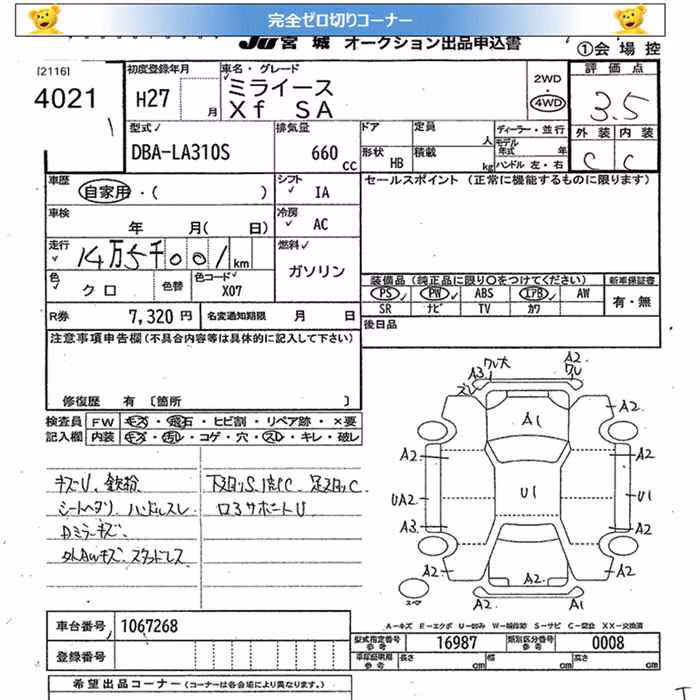 完全ゼロ切りコーナー
JU宮城 オークション出品申込書
①会場控
[2116]
4021
初度登録年月
H27 月
車名・グレード
ミライース
Xf SA
2WD
・
4WD
評価点
3.5
外装 内装
C C
型式
DBA-LA310S
排気量
660 CC
ドア 定員 人
形状 HB 積載 kg
ディーラー・並行
モデル年式 年
ハンドル 左・右
車歴
自家用・( )
シフト
IA
セールスポイント (正常に機能するものに限ります)
車検
年 月( 日)
冷房
AC
走行
14万5千001km
燃料
ガソリン
色
クロ
色替
色コード
X07
装備品(純正品に限り○をつけてください) 新車保証書
PS PW ABS エアB AW 有・無
SR ナビ TV カワ
R券 7,320 円 名変通知期限 月 日
後日品
注意事項申告欄(不具合内容等は具体的に記入して下さい)
修復歴 有 [箇所 ]
検査員 FW キズ・飛石・ヒビ割・リペア跡・×要
記入欄 内装 キズ・汚レ・コゲ・穴・スレ・キレ・破レ
キズU、鉄粉
シートヘタリ ハンドルスレ
Dミラーキズ
スタッドレス
下廻りS
ロアサポートU
A3 ワレ大 A2 ワレ
ズレ
A1
A2 A2
A2 A2
UA2 U1 U1
A3 A2
A2 A2 A2
スペア
A2 A1
A-キズ E-エクボ U-凹み W-補修跡 S-サビ C-腐食 XX-交換済
車台番号 1067268
型式指定番号 参考 16987 類別区分番号 参考 0008
登録番号
長さ cm 幅 cm 高さ cm
希望出品コーナー (コーナーは各会場により異なります。)